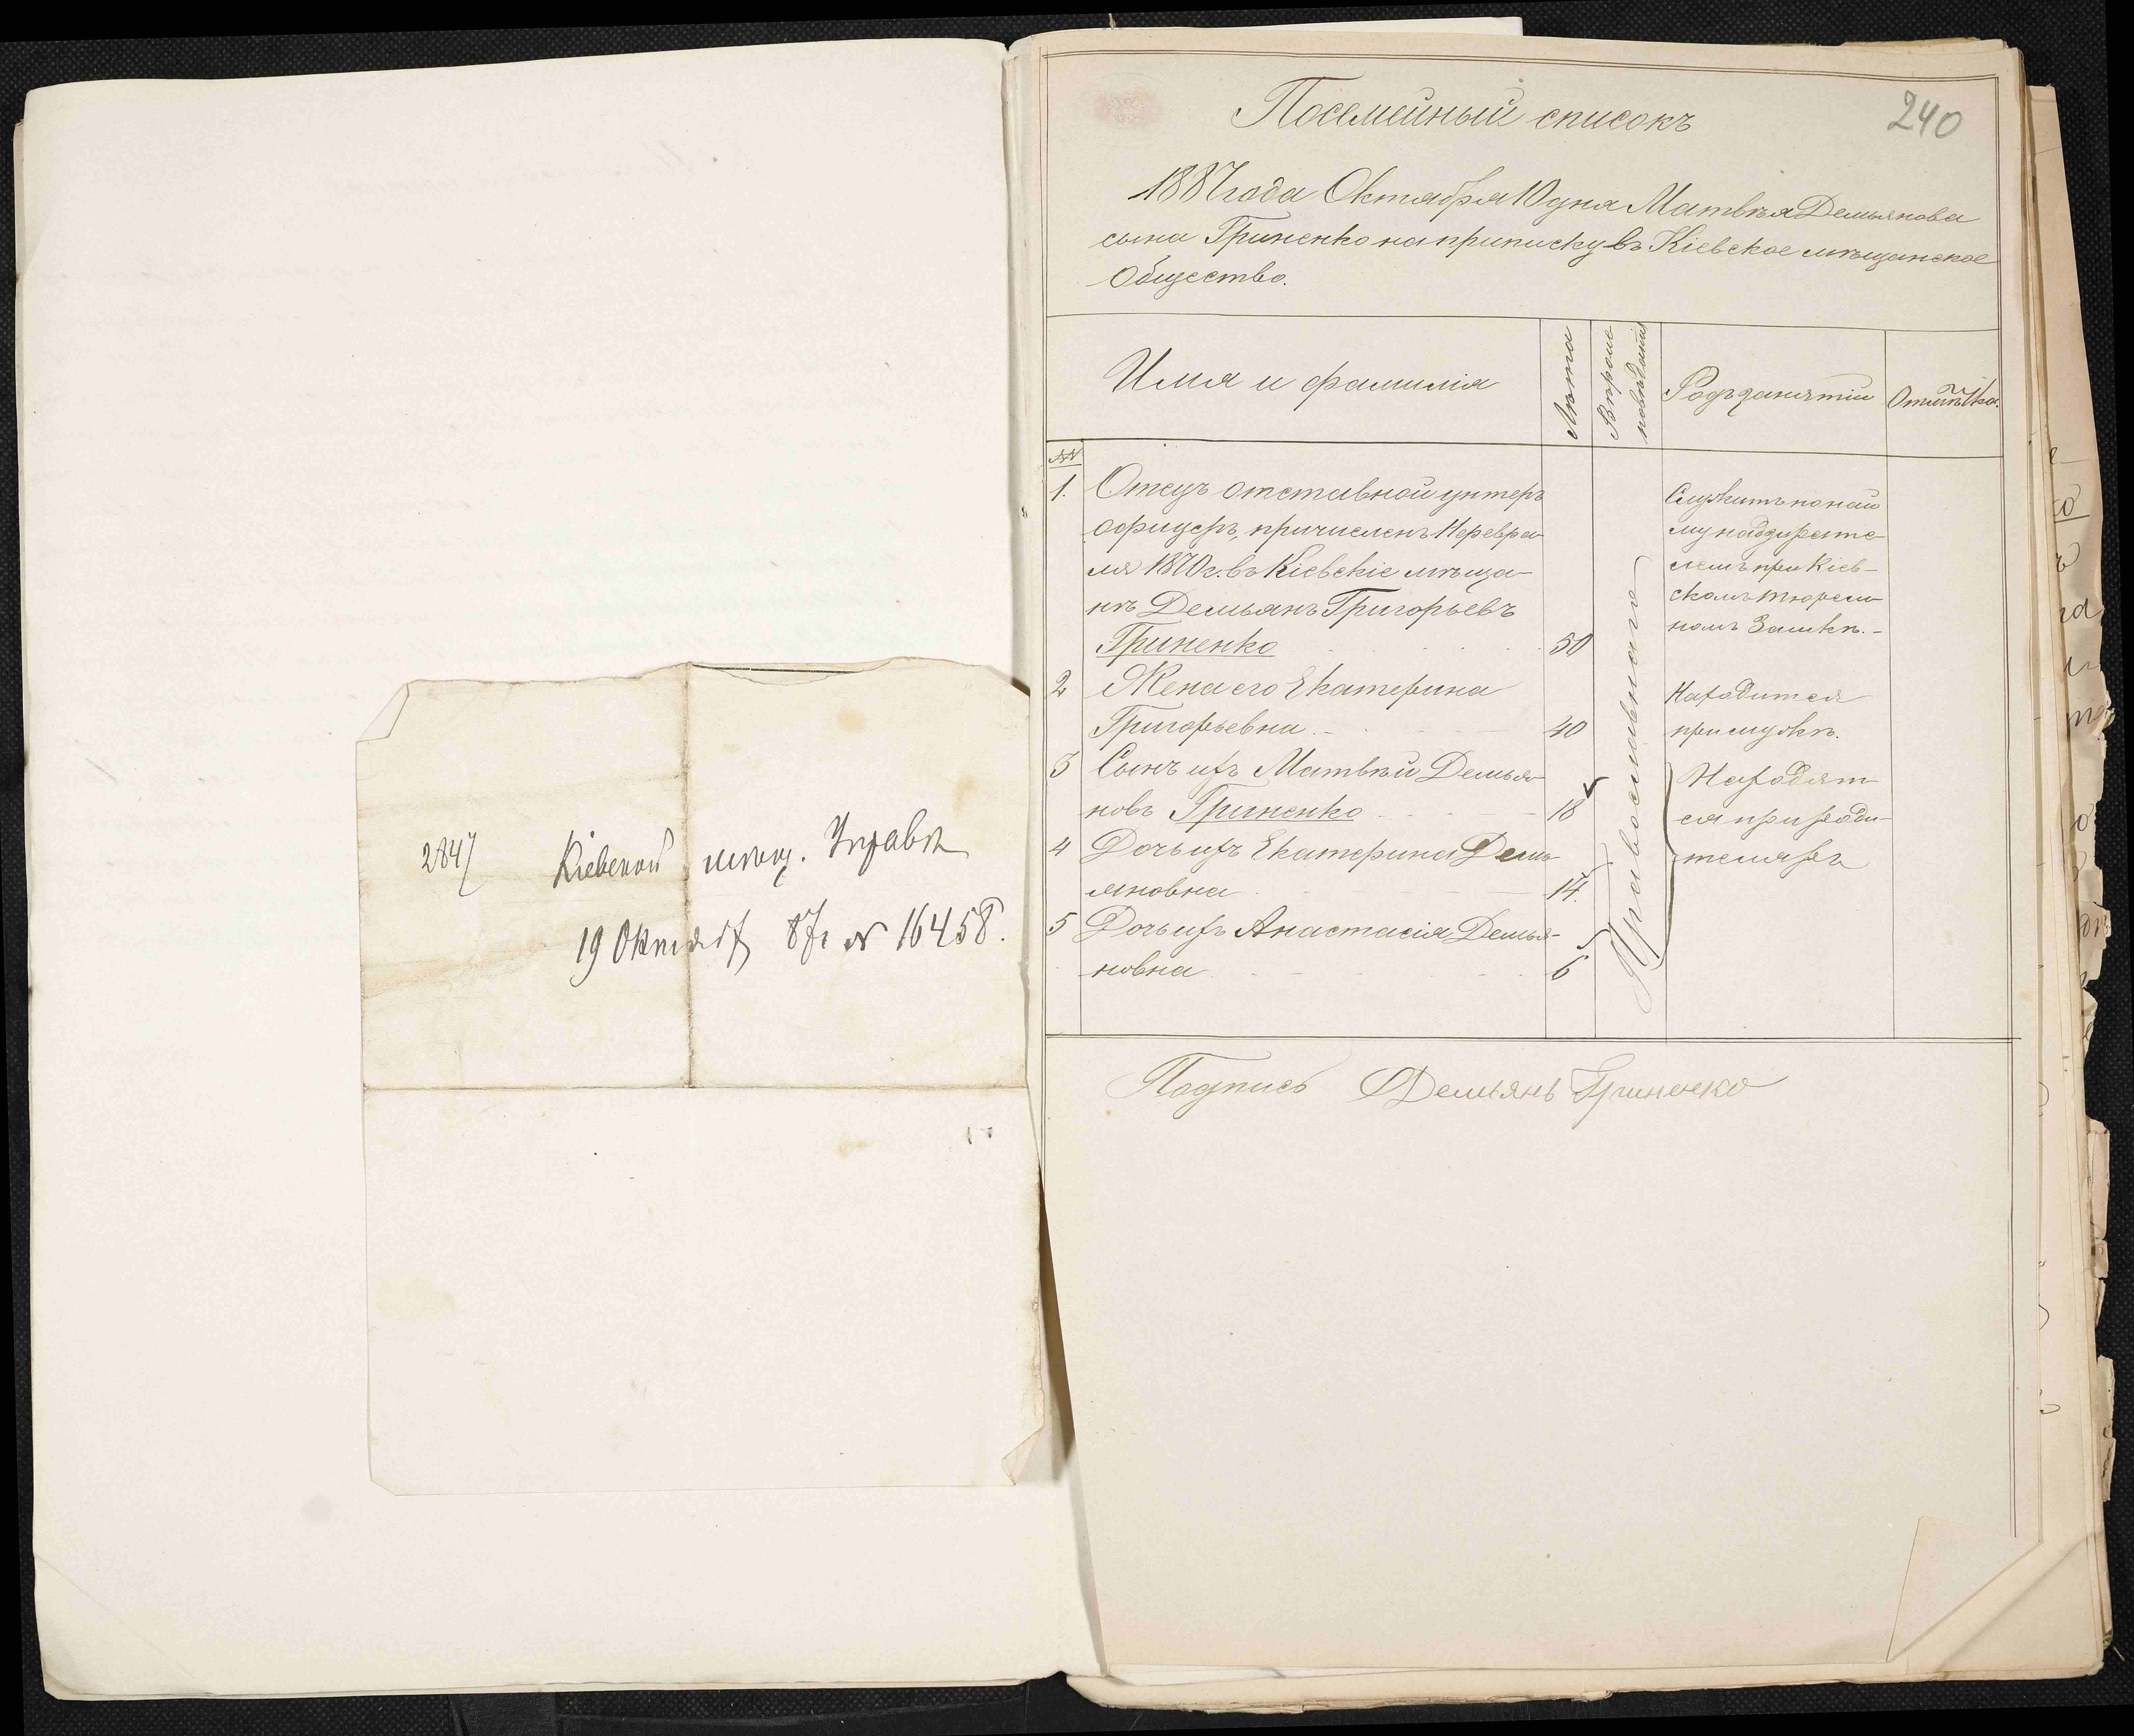 2847 Кіевской мѣщ. Управѣ
19 Октября 87г № 16458.
240
Посемейный списокъ
1887 года Октября 10 дня Матвѣя Демьянова
сына Гриненко на приписку въ Кіевское мѣщанское
Общество.
Имя и фамилія
Лѣта
Вѣроис
повѣданія
Родъ занятій
Отмѣтка.
№№
1. Отецъ отставной унтеръ
офицеръ, причисленъ 11 февра-
ля 1870 г. въ Кіевскіе мѣща-
нѣ Демьянъ Григорьевъ
Гриненко 50
Служитъ по най
му надзирате-
лемъ при Кіев-
скомъ тюрем
номъ Замкѣ.-
2 Жена его Екатерина
Григорьевна 40
Находится
при мужѣ.
3 Сынъ ихъ Матвѣй Демья-
новъ Гриненко 18
4 Дочь ихъ Екатерина Демь
яновна 14.
5 Дочь ихъ Анастасія Демья-
новна 6
Православнаго
Находят
ся при роди-
теляхъ
Подпись Демьянъ Гриненко